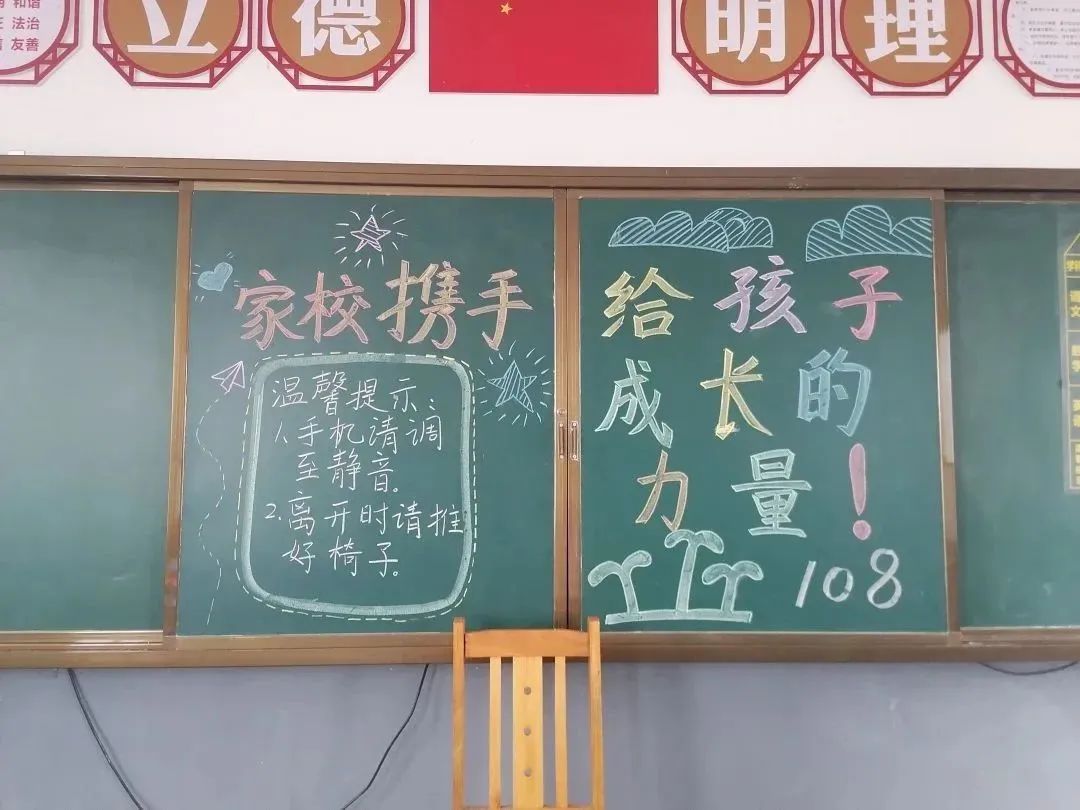 和谐
法治
友善
立德
明理
家校携手
温馨提示:
1、手机请调
至静音。
2.离开时请推
好椅子。
给孩子
成长的
力量!
108